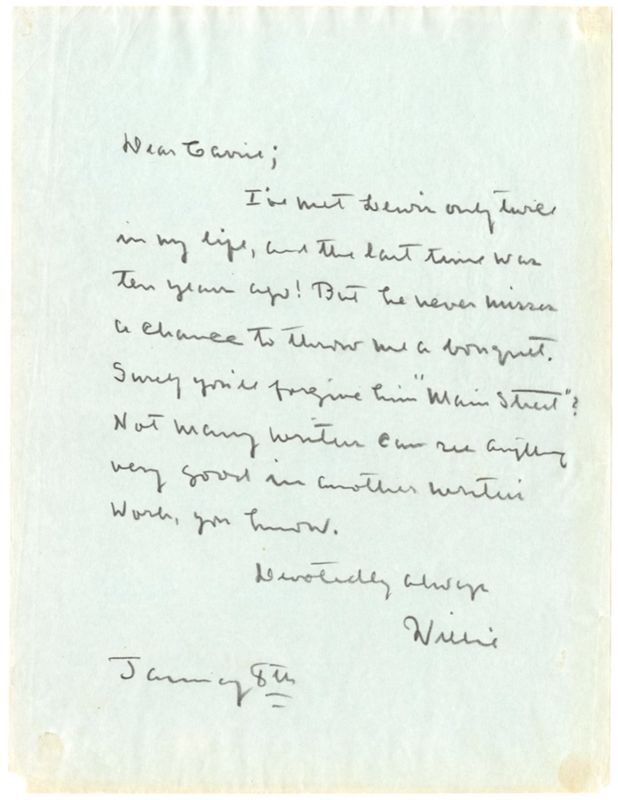 Dear Carrie;
I've met Lewis only twice
in my life, and the last time was
ten years ago! But he never misses
a chance to throw me a bouquet.
Surely you'll forgive him "Main Street"?
Not many writers can see anything
very good in another writer's
work, you know.
Devotedly always
Willie
January 8th